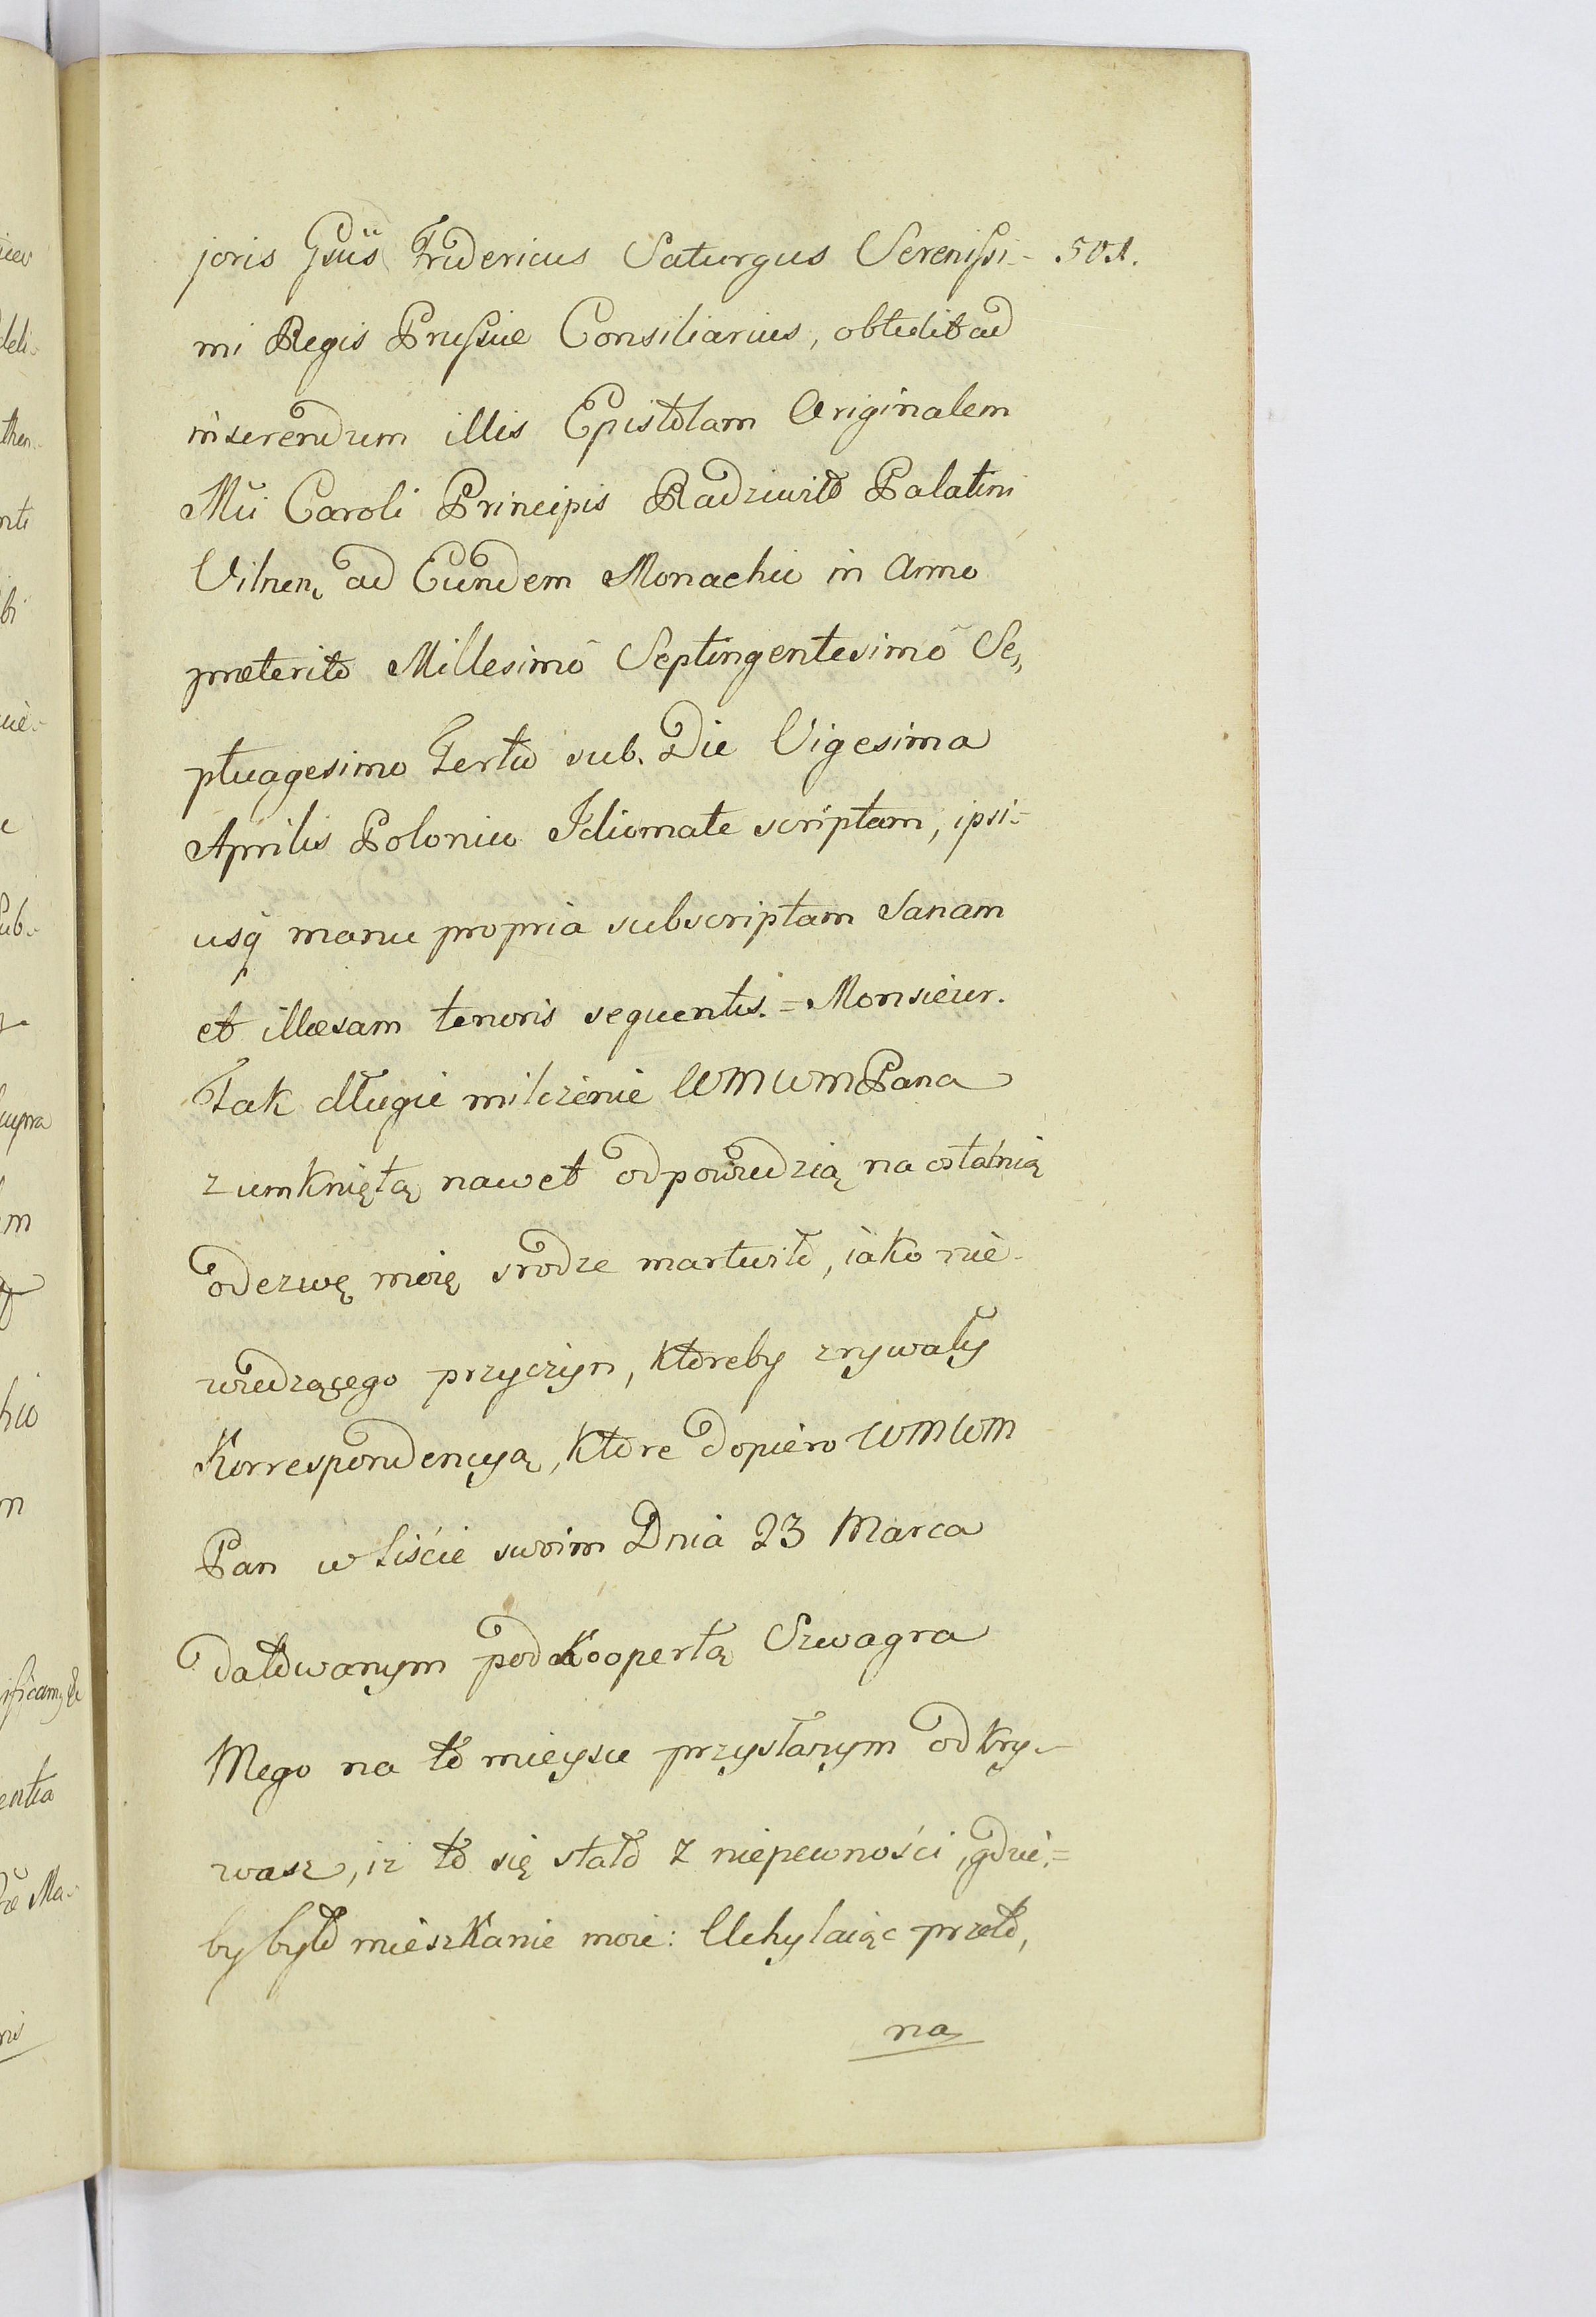 joris Gsüs Fridericus Saturgus Serenissi- 501.
mi Regis Prussiæ Consiliarius, obtulit ad
inserendum illis Epistolam Originalem
Mui Caroli Principis Radziwiłł Palatini
Vilnen, ad Eundem Monachii in Anno
præterito Millesimo Septingentesimo Se,,
ptuagesimo Tertio sub. Die Vigesima
Aprilis Polonico Idiomate scriptam, ipsi-
usq manu propria subscriptam Sanam
et illæsam tenoris sequentis. = Monsieur.
Tak długie milczenie WMWMPana
z umkniętą nawet odpowiedzią na ostatnią
odezwę moię srodze martwiło, iako nie-
wiedzącego przyczyn, ktoreby zrywały
Korrespondencyą, Ktore dopiero WMWM
Pan w liście swoim Dnia 23 Marca
datowanym pod Koopertą Szwagra
Mego na to mieysce przysłanym odkry-
wasz, iz to się stało z niepewności, gdzie=
by było mieszkanie moie: Uchylaiąc przeto,
na